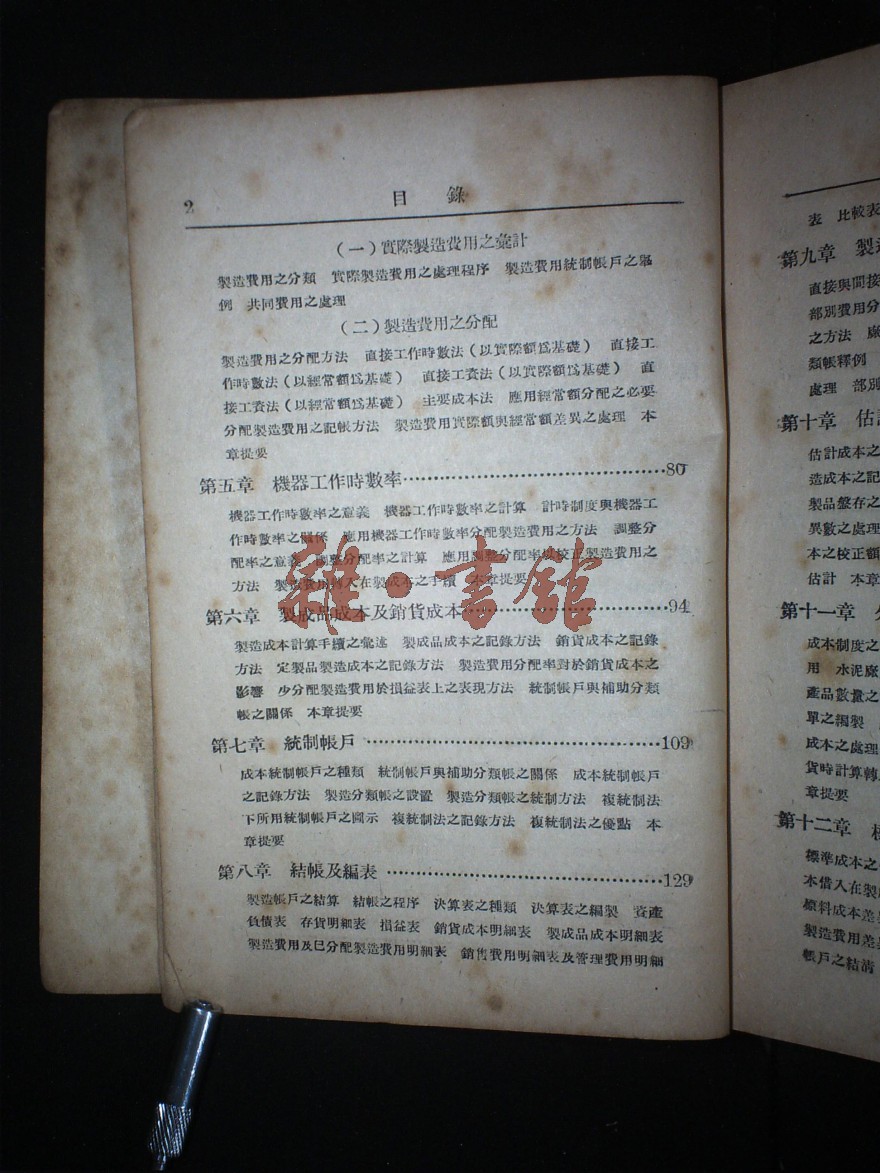 2
目 錄
(一)實際製造費用之彙計
製造費用之分類 實際製造費用之處理程序 製造費用統制帳戶之舉
例 共同費用之處理
(二)製造費用之分配
製造費用之分配方法 直接工作時數法(以實際額爲基礎) 直接工
作時數法(以經常額爲基礎) 直接工資法(以實際額爲基礎) 直
接工資法(以經常額爲基礎) 主要成本法 應用經常額分配之必要
分配製造費用之記帳方法 製造費用實際額與經常額差異之處理 本
章提要
第五章 機器工作時數率……80
機器工作時數率之意義 機器工作時數率之計算 計時制度與機器工
作時數率之關係 應用機器工作時數率分配製造費用之方法 調整分
配率之意義 調整分配率之計算 應用調整分配率以校正製造費用之
方法 製造費用轉入在製成本之手續 本章提要
第六章 製成品成本及銷貨成本……94
製造成本計算手續之彙述 製成品成本之記錄方法 銷貨成本之記錄
方法 定製品製造成本之記錄方法 製造費用分配率對於銷貨成本之
影響 少分配製造費用於損益表上之表現方法 統制帳戶與補助分類
帳之關係 本章提要
第七章 統制帳戶……109
成本統制帳戶之種類 統制帳戶與補助分類帳之關係 成本統制帳戶
之記錄方法 製造分類帳之設置 製造分類帳之統制方法 複統制法
下所用統制帳戶之圖示 複統制法之記錄方法 複統制法之優點 本
章提要
第八章 結帳及編表……129
製造帳戶之結算 結帳之程序 決算表之種類 決算表之編製 資產
負債表 存貨明細表 損益表 銷貨成本明細表 製成品成本明細表
製造費用及已分配製造費用明細表 銷售費用明細表及管理費用明細
表 比較表
第九章 製造
直接與間接
部別費用分
之方法 廠
類帳釋例
處理 部別
第十章 估計
估計成本之
造成本之記
製品盤存之
異數之處理
本之校正額
估計 本章
第十一章 分
成本制度之
用 水泥廠
產品數量之
單之編製
成本之處理
貨時計算轉
章提要
第十二章 標
標準成本之
本借入在製
原料成本差
製造費用差
帳戶之結清
雜·書館